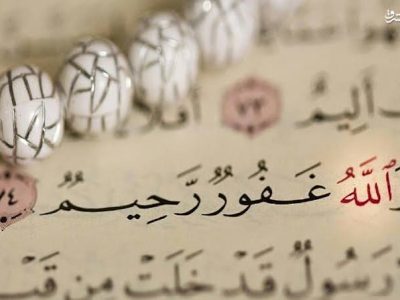 أَلِيمٌ ٧٣
ٱللَّهُ غَفُورٌ رَّحِيمٌ ٧٤
رَسُولٌ قَدْ خَلَتْ مِن